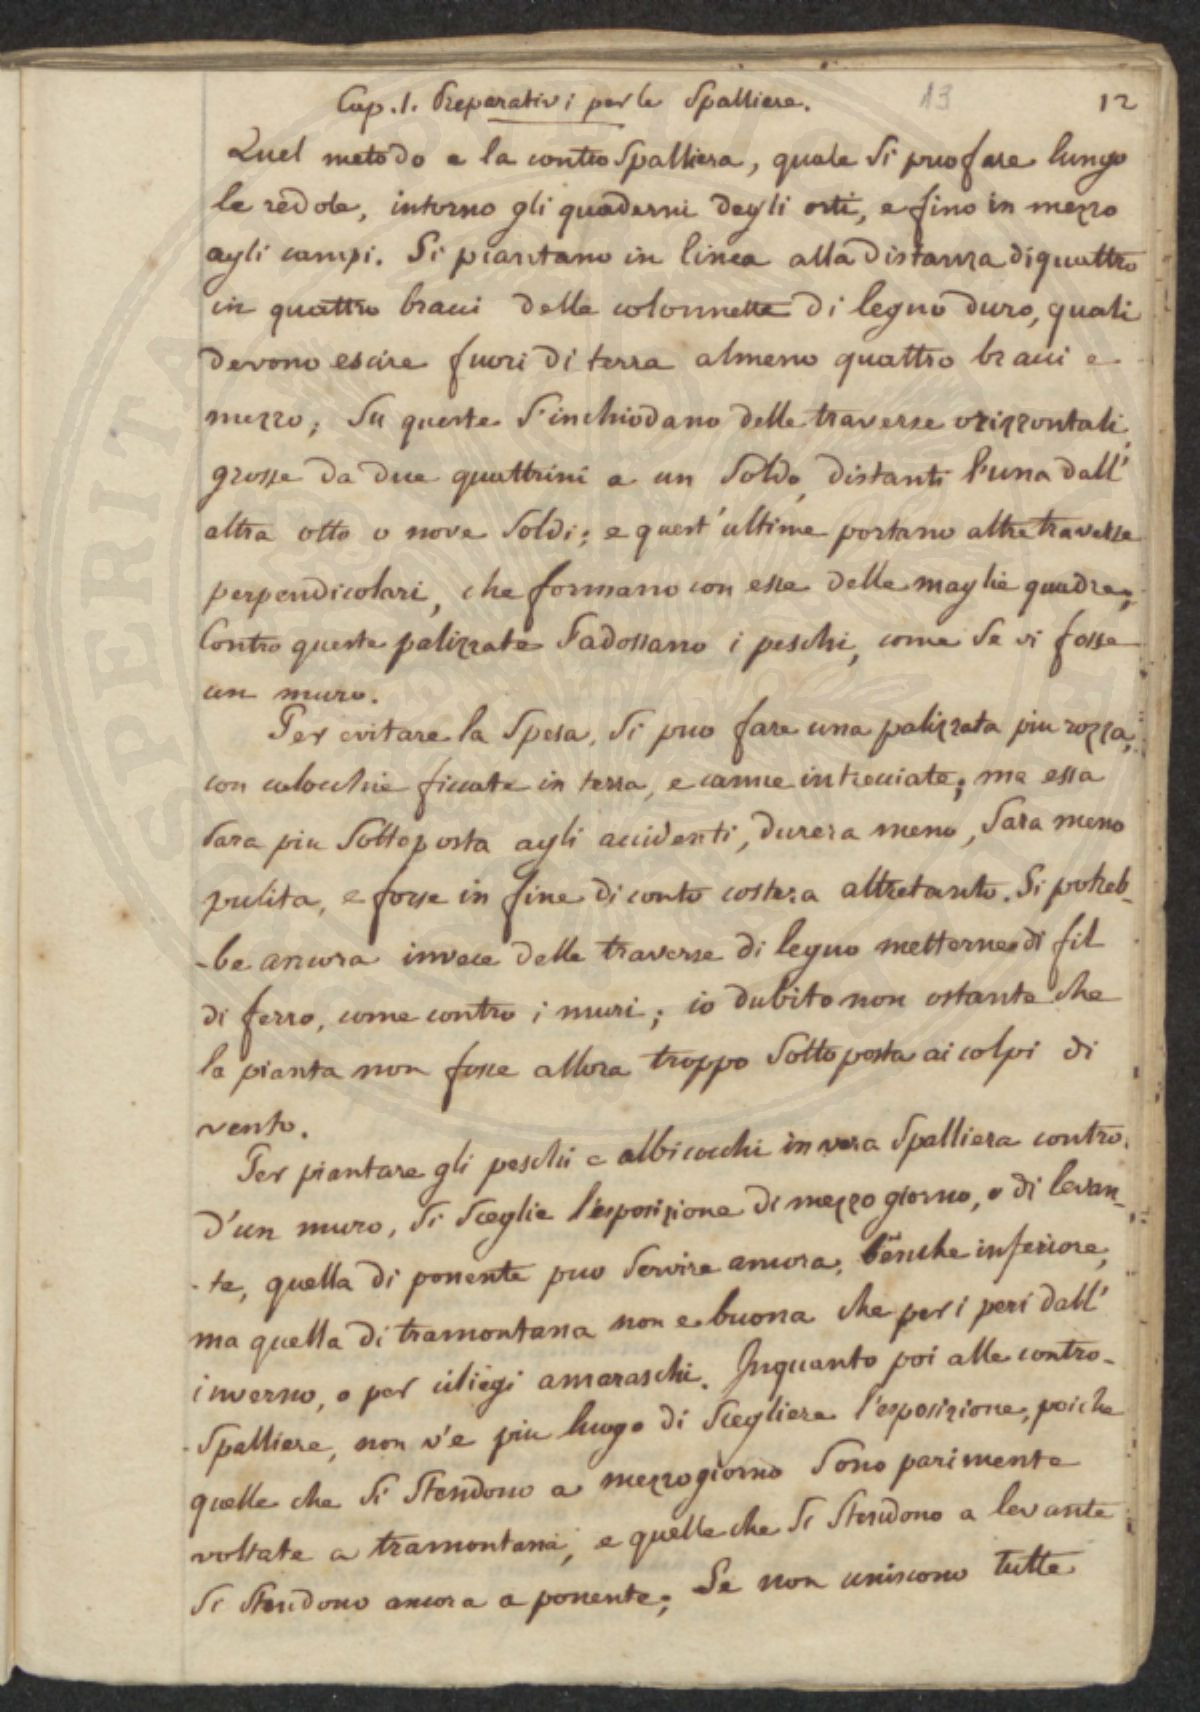 Cap. 1. Preparativi per le Spalliere. 13 12
Quel metodo e la contro Spalliera, quale Si puo fare lungo
le redole, intorno gli quaderni degli orti, e fino in mezzo
agli campi. Si piantano in linea alla distanza di quattro
in quattro bracci delle colonnette di legno duro, quali
devono escire fuori di terra almeno quattro bracci e
mezzo; Su queste S'inchiodano delle traverse orizzontali,
grosse da due quattrini a un Soldo, distanti l'una dall'
altra otto o nove Soldi; e quest'ultime portano altre traverse
perpendicolari, che formano con esse delle maglie quadre;
Contro queste palizzate S'adossano i peschi, come Se vi fosse
un muro.
Per evitare la Spesa, Si puo fare una palizzata piu rozza,
con colocchie ficcate in terra, e canne intrecciate; ma essa
Sara piu Sottoposta agli accidenti, durera meno, Sara meno
pulita, e forse in fine di conto costera altretanto. Si potreb-
-be ancora invece delle traverse di legno metterne di fil
di ferro, come contro i muri; io dubito non ostante che
la pianta non fosse allora troppo Sottoposta ai colpi di
vento.
Per piantare gli peschi e albicocchi in vera Spalliera contro
d'un muro, Si Sceglie l'esposizione di mezzo giorno, o di levan-
-te, quella di ponente puo Servire ancora, benche inferiore,
ma quella di tramontana non e buona che per i peri dall'
inverno, o per ciliegi amaraschi. Inquanto poi alle contro-
-Spalliere, non v'e piu luogo di Scegliere l'esposizione, poiche
quelle che Si Stendono a mezzogiorno Sono parimente
voltate a tramontana, e quelle che Si Stendono a levante
Si Stendono ancora a ponente; Se non uniscono tutte